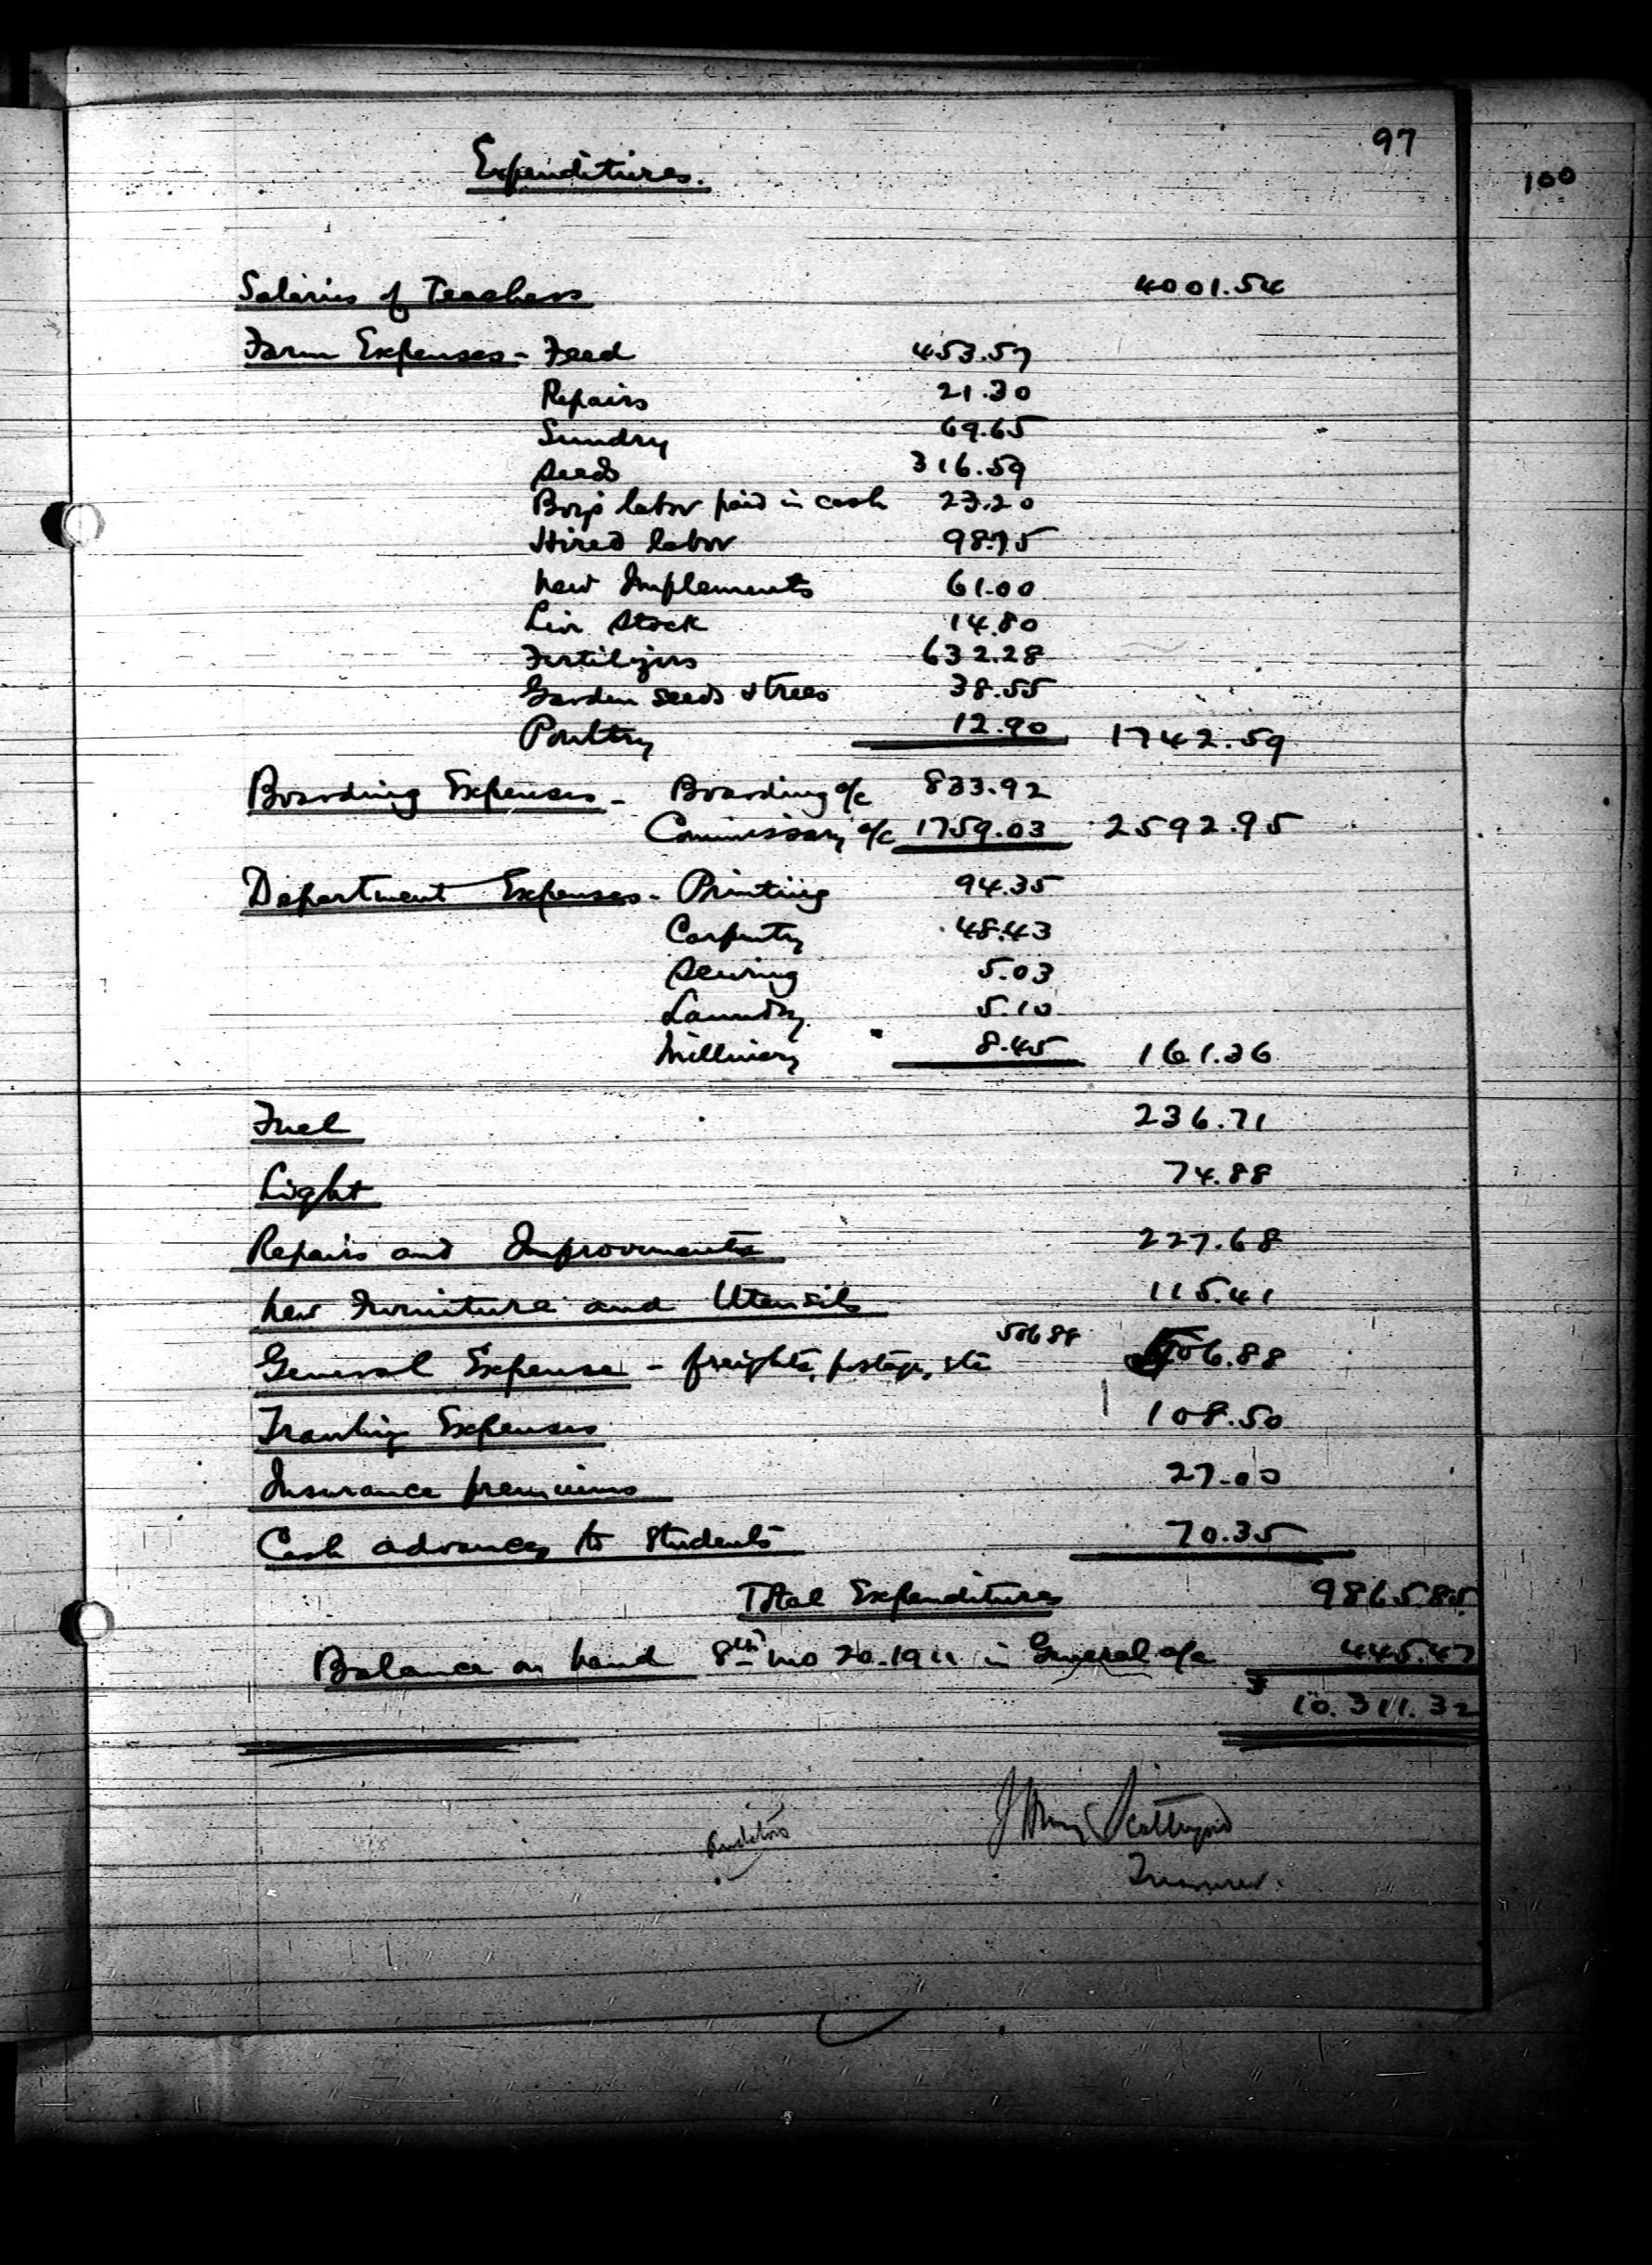 97
100
Expenditures.
Salaries of Teachers 4001.54
Farm Expenses - Feed 453.57
Repairs 21.30
Sundry 69.65
Seeds 316.59
Boys labor paid in cash 23.20
Hired labor 98.75
New Implements 61.00
Live Stock 14.80
Fertilizers 632.28
Garden seeds & trees 38.55
Poultry 12.90 1742.59
Boarding Expenses - Boarding a/c 833.92
Commissary a/c 1759.03 2592.95
Department Expenses - Printing 94.35
Carpentry 48.43
Sewing 5.03
Laundry 5.10
Millinery 8.45 161.36
Fuel 236.71
Light 74.88
Repairs and Improvements 227.68
New Furniture and Utensils 115.41
General Expense - freights, postage, etc 506 88 506.88
Traveling Expenses 108.50
Insurance premiums 27.00
Cash advances to Students 70.35
Total Expenditures 9865.85
Balance on hand 8th mo 20. 1911 in General a/c 445.47
$ 10.311.32
J Henry Scattergood
Auditors
Treasurer.